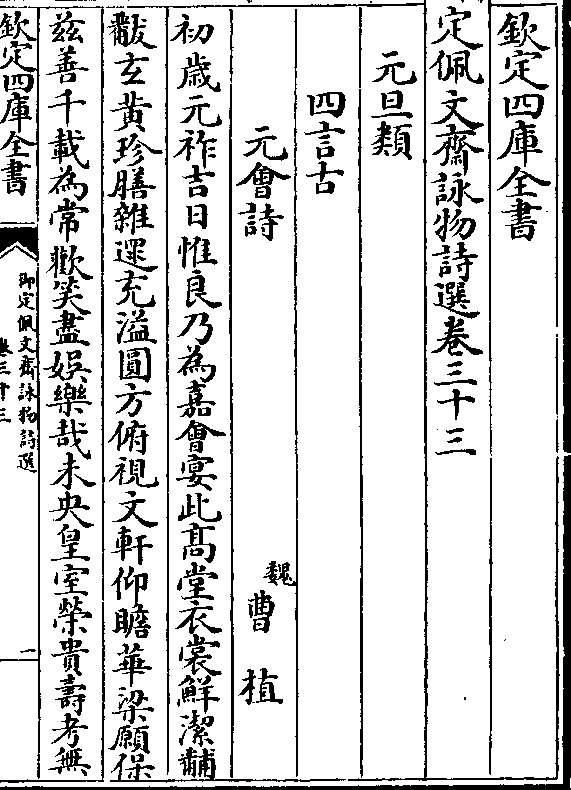 欽定四庫全書
定佩文齋詠物詩選卷三十三
元旦類
四言古
元會詩
魏
曹植
初歲元祚吉日惟良乃為嘉會宴此髙堂衣裳鮮潔黼
黻玄黃珍膳雜遝充溢圓方俯視文軒仰瞻華梁願保
兹善千載為常歡笑盡娛樂哉未央皇室榮貴壽考無
欽定四庫全書
御定佩文齋詠物詩選
卷三十三
一